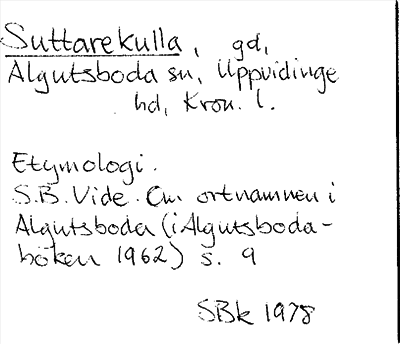 Suttarekulla, gd,
Algutsboda sn, Uppvidinge
hd, Kron. l.
Etymologi.
S.B. Vide. Om ortnamnen i
Algutsboda (i Algutsboda-
boken 1962) s. 9
SBk 1978